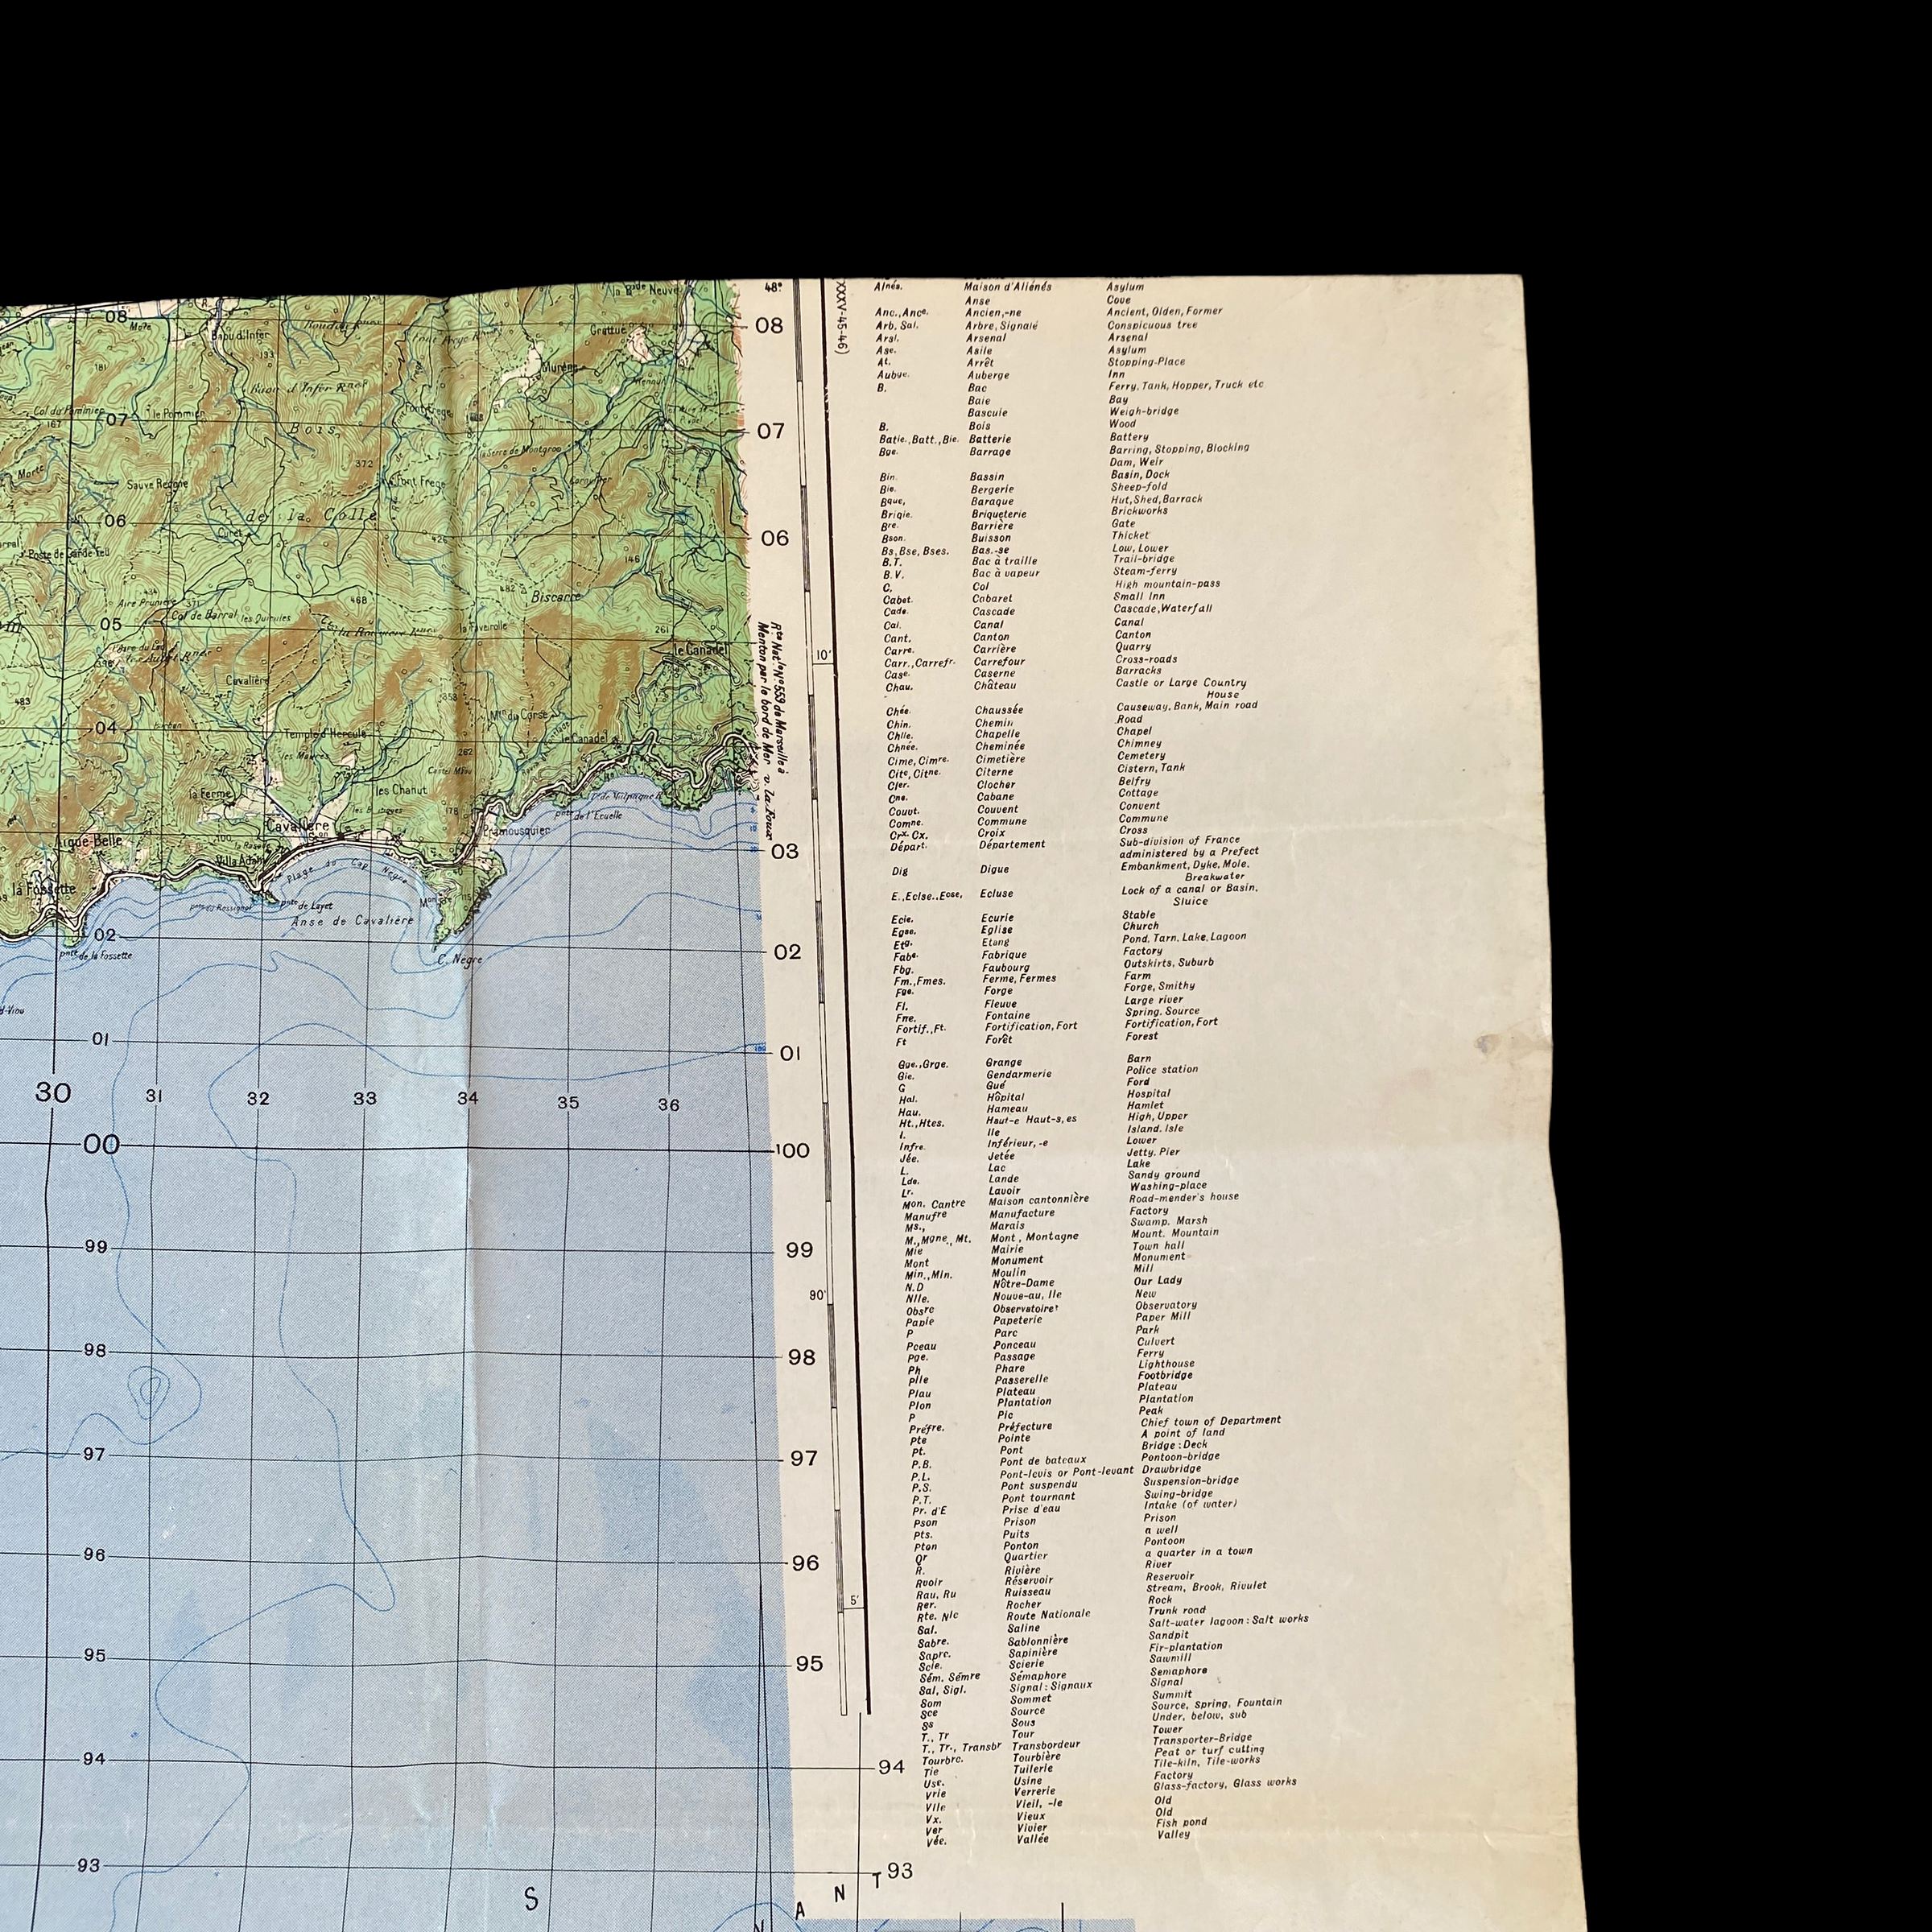 la Bde Neuve
48°
08
08
Mole
Baou d'Infer
Grattue
133
181
Murène
Col du Pommier
le Pommier
Font Frege
167
07
07
Bois
372
Morte
Sauve Reôme
Font Frege
06
de la Colle
06
Curet
426
146
Poste de Garde Feu
482
Biscarre
434
371
468
Col de Barral
les Quinules
05
la Faverolle
261
le Canadel
10'
Cavalière
483
353
Mtn du Corse
04
Temple d'Hercule
le Canadel
262
les Maures
les Chanut
la Ferme
178
Pramousquier
pnte de l'Ecuelle
Cavalière
Aigue-Belle
Villa Adam
03
Plage du Cap Nègre
la Fossette
pnte de Layet
Anse de Cavalière
02
02
pnte de la Fossette
C. Nègre
Rte Natle N°559 de Marseille à
Menton par le bord de Mer v. La Foux
01
01
30
31
32
33
34
35
36
00
100
99
99
80'
98
98
97
97
96
96
5'
95
95
94
94
93
93
S
N
A
N
T
XXXV-45-46)
Alnés. Maison d'Aliénés Asylum
Anse Cove
Anc., Ance. Ancien,-ne Ancient, Olden, Former
Arb. Sal. Arbre, Signalé Conspicuous tree
Arsl. Arsenal Arsenal
Ase. Asile Asylum
At. Arrêt Stopping-Place
Aubve. Auberge Inn
B. Bac Ferry, Tank, Hopper, Truck etc
Baie Bay
Bascule Weigh-bridge
B. Bois Wood
Batie., Batt., Bie. Batterie Battery
Bge. Barrage Barring, Stopping, Blocking
Dam, Weir
Bin. Bassin Basin, Dock
Bie. Bergerie Sheep-fold
Bque, Baraque Hut, Shed, Barrack
Briqie. Briqueterie Brickworks
Bre. Barrière Gate
Bson. Buisson Thicket
Bs, Bse, Bses. Bas.-se Low, Lower
B.T. Bac à traille Trail-bridge
B.V. Bac à vapeur Steam-ferry
C. Col High mountain-pass
Cabet. Cabaret Small Inn
Cade. Cascade Cascade, Waterfall
Cal. Canal Canal
Cant. Canton Canton
Carre. Carrière Quarry
Carr., Carrefr. Carrefour Cross-roads
Case. Caserne Barracks
Chau. Château Castle or Large Country
House
Chée. Chaussée Causeway, Bank, Main road
Chin. Chemin Road
Chlle. Chapelle Chapel
Chnée. Cheminée Chimney
Cime, Cimre. Cimetière Cemetery
Cite, Citne. Citerne Cistern, Tank
Cler. Clocher Belfry
Cne. Cabane Cottage
Couvt. Couvent Convent
Comne. Commune Commune
Crx. Cx. Croix Cross
Départ. Département Sub-division of France
administered by a Prefect
Dig Digue Embankment, Dyke, Mole.
Breakwater
E., Eclse., Ecse, Ecluse Lock of a canal or Basin.
Sluice
Ecie. Ecurie Stable
Egse. Eglise Church
Etg. Etang Pond, Tarn, Lake, Lagoon
Fabe. Fabrique Factory
Fbg. Faubourg Outskirts, Suburb
Fm., Fmes. Ferme, Fermes Farm
Fge. Forge Forge, Smithy
Fl. Fleuve Large river
Fne. Fontaine Spring. Source
Fortif., Ft. Fortification, Fort Fortification, Fort
Ft Forêt Forest
Gge., Grge. Grange Barn
Gie. Gendarmerie Police station
G Gué Ford
Hal. Hôpital Hospital
Hau. Hameau Hamlet
Ht., Htes. Haut-e Haut-s, es High, Upper
I. Ile Island. Isle
Infre. Inférieur, -e Lower
Jée. Jetée Jetty. Pier
L. Lac Lake
Lde. Lande Sandy ground
Lr. Lavoir Washing-place
Mon. Cantre Maison cantonnière Road-mender's house
Manufre Manufacture Factory
Ms., Marais Swamp. Marsh
M., Mgne., Mt. Mont, Montagne Mount. Mountain
Mie Mairie Town hall
Mont Monument Monument
Min., Mln. Moulin Mill
N.D Nôtre-Dame Our Lady
Nlle. Nouve-au, lle New
Obsre Observatoire Observatory
Papie Papeterie Paper Mill
P Parc Park
Pceau Ponceau Culvert
Pge. Passage Ferry
Ph Phare Lighthouse
Plle Passerelle Footbridge
Plau Plateau Plateau
Plon Plantation Plantation
P Pic Peak
Préfre. Préfecture Chief town of Department
Pte Pointe A point of land
Pt. Pont Bridge : Deck
P.B. Pont de bateaux Pontoon-bridge
P.L. Pont-levis or Pont-levant Drawbridge
P.S. Pont suspendu Suspension-bridge
P.T. Pont tournant Swing-bridge
Pr. d'E Prise d'eau Intake (of water)
Pson Prison Prison
Pts. Puits a well
Pton Ponton Pontoon
Qr Quartier a quarter in a town
R. Rivière River
Rvoir Réservoir Reservoir
Rau, Ru Ruisseau Stream, Brook, Rivulet
Rer. Rocher Rock
Rte. Nle Route Nationale Trunk road
Sal. Saline Salt-water lagoon : Salt works
Sabre. Sablonnière Sandpit
Sapre. Sapinière Fir-plantation
Scie. Scierie Sawmill
Sém. Sémre Sémaphore Semaphore
Sal, Sigl. Signal : Signaux Signal
Som Sommet Summit
Sce Source Source, Spring, Fountain
Ss Sous Under, below, sub
T., Tr Tour Tower
T., Tr., Transbr Transbordeur Transporter-Bridge
Tourbre. Tourbière Peat or turf cutting
Tie Tuilerie Tile-kiln, Tile-works
Use. Usine Factory
Vrie Verrerie Glass-factory, Glass works
Vlle Vieil, -le Old
Vx. Vieux Old
Ver Vivier Fish pond
Vée. Vallée Valley